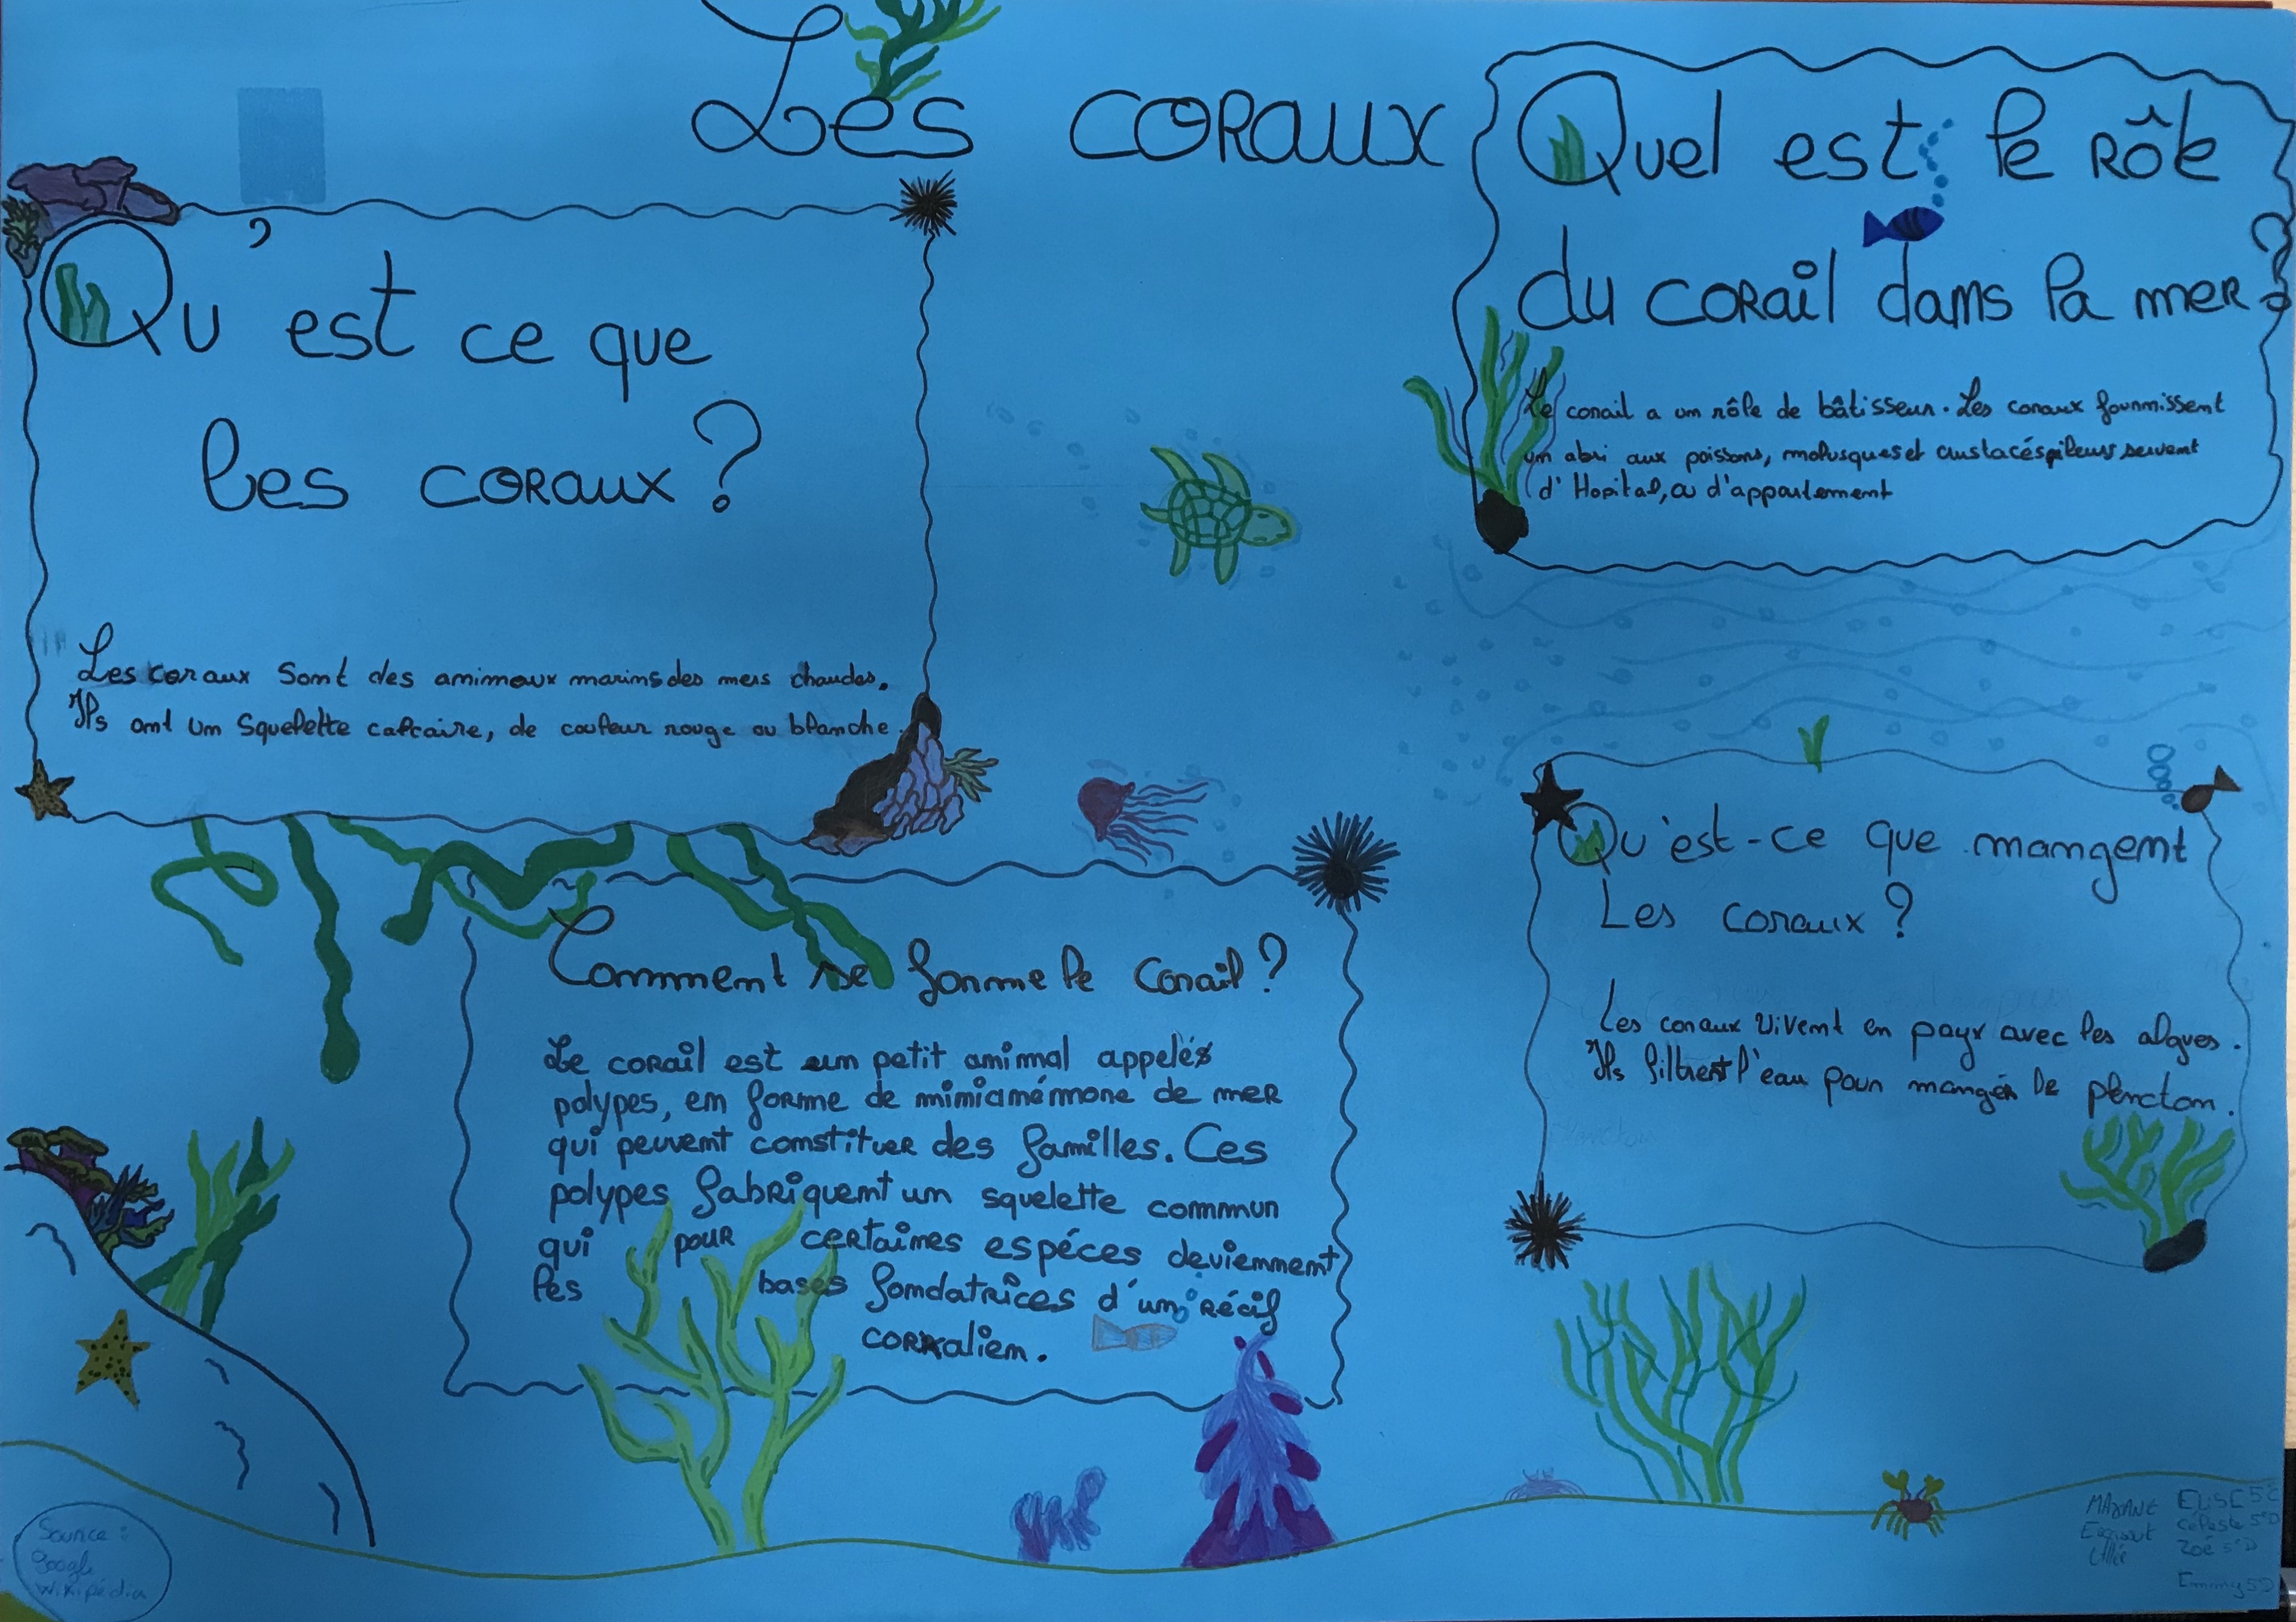 Les coraux
Qu'est ce que
les coraux ?
Les coraux sont des animaux marins des mers chaudes.
Ils ont un squelette calcaire, de couleur rouge ou blanche.
Quel est le rôle
du corail dans la mer ?
Le corail a un rôle de bâtisseur. Les coraux fournissent
un abri aux poissons, molusques et crustacés, leurs servent
d'Hopital, ou d'appartement
Comment se forme le corail ?
Le corail est un petit animal appelés
polypes, en forme de mimianémone de mer
qui peuvent constituer des familles. Ces
polypes fabriquent un squelette commun
qui pour certaines espéces deviennent
les bases fondatrices d'un récif
corralien.
Qu'est-ce que mangent
Les coraux ?
Les coraux vivent en payx avec les algues.
Ils filtrent l'eau pour manger le plencton.
Source :
Google
Wikipédia
ELISE 5°C
Céleste 5°D
Zoé 5°D
Emmy 5D